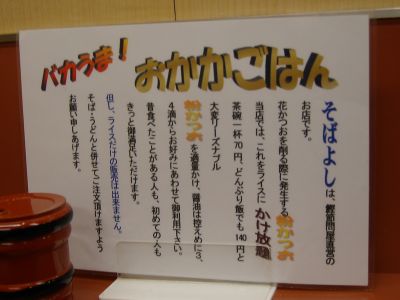 バカうま!
おかかごはん
そばよしは、鰹節問屋直営の
お店です。
花かつおを削る際に発生する粉かつお
当店では、これをライスにかけ放題
茶碗一杯70円、どんぶり飯でも140円と
大変リーズナブル
粉かつおを適量かけ、醤油は控えめに3、
4滴からお好みにあわせて御利用下さい。
昔食べたことがある人も、初めての人も
きっと御満足いただけます。
但し、ライスだけの販売は出来ません。
そば・うどんと併せてご注文頂けますよう
お願い申しあげます。